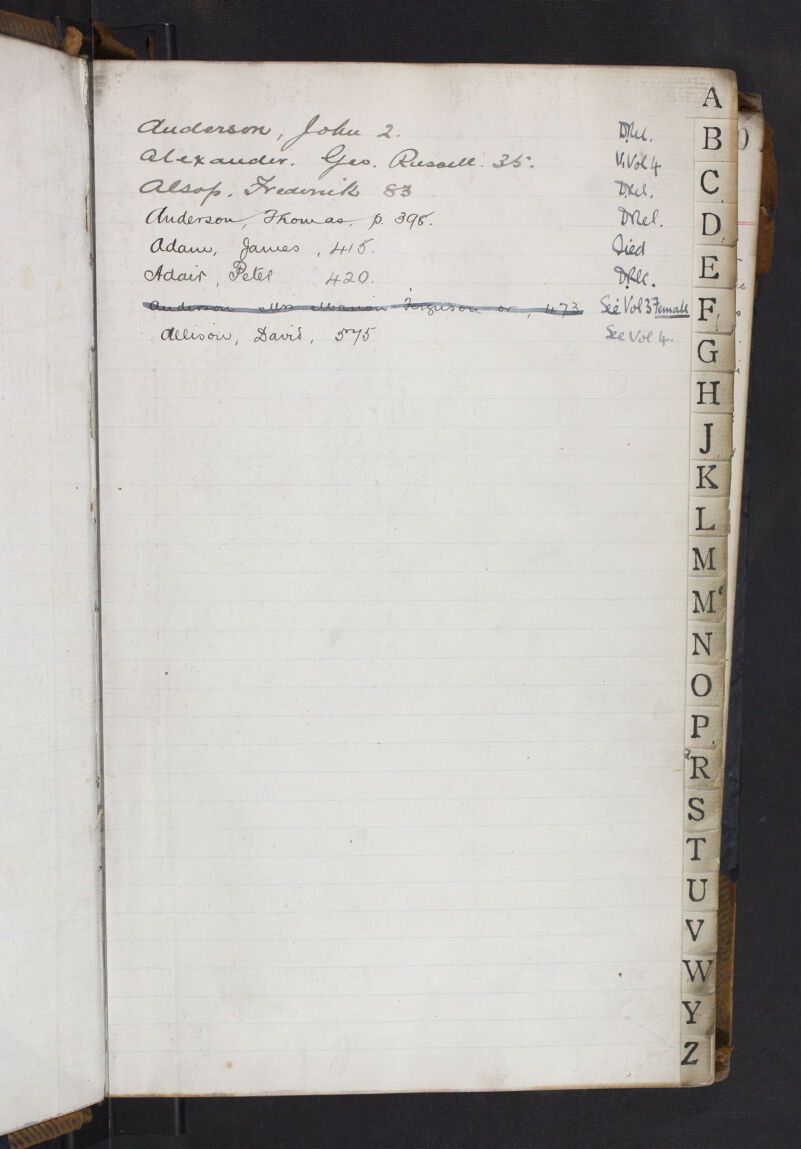 Anderson, John 2. D.Rel.
Alexander. Geo. Russell. 35. V. Vol 4
Alsop. Frederick 83 D.Rel.
Anderson, Thomas, p. 398. D Rel.
Adam, James, 415. Died
Adair, Peter 420. D.Rel.
Anderson Mrs Marion Ferguson or, 473 See Vol 3 Female
Allison, David, 575 See Vol 4.
A
B
C
D
E
F
G
H
J
K
L
M
Mc
N
O
P
R
S
T
U
V
W
Y
Z